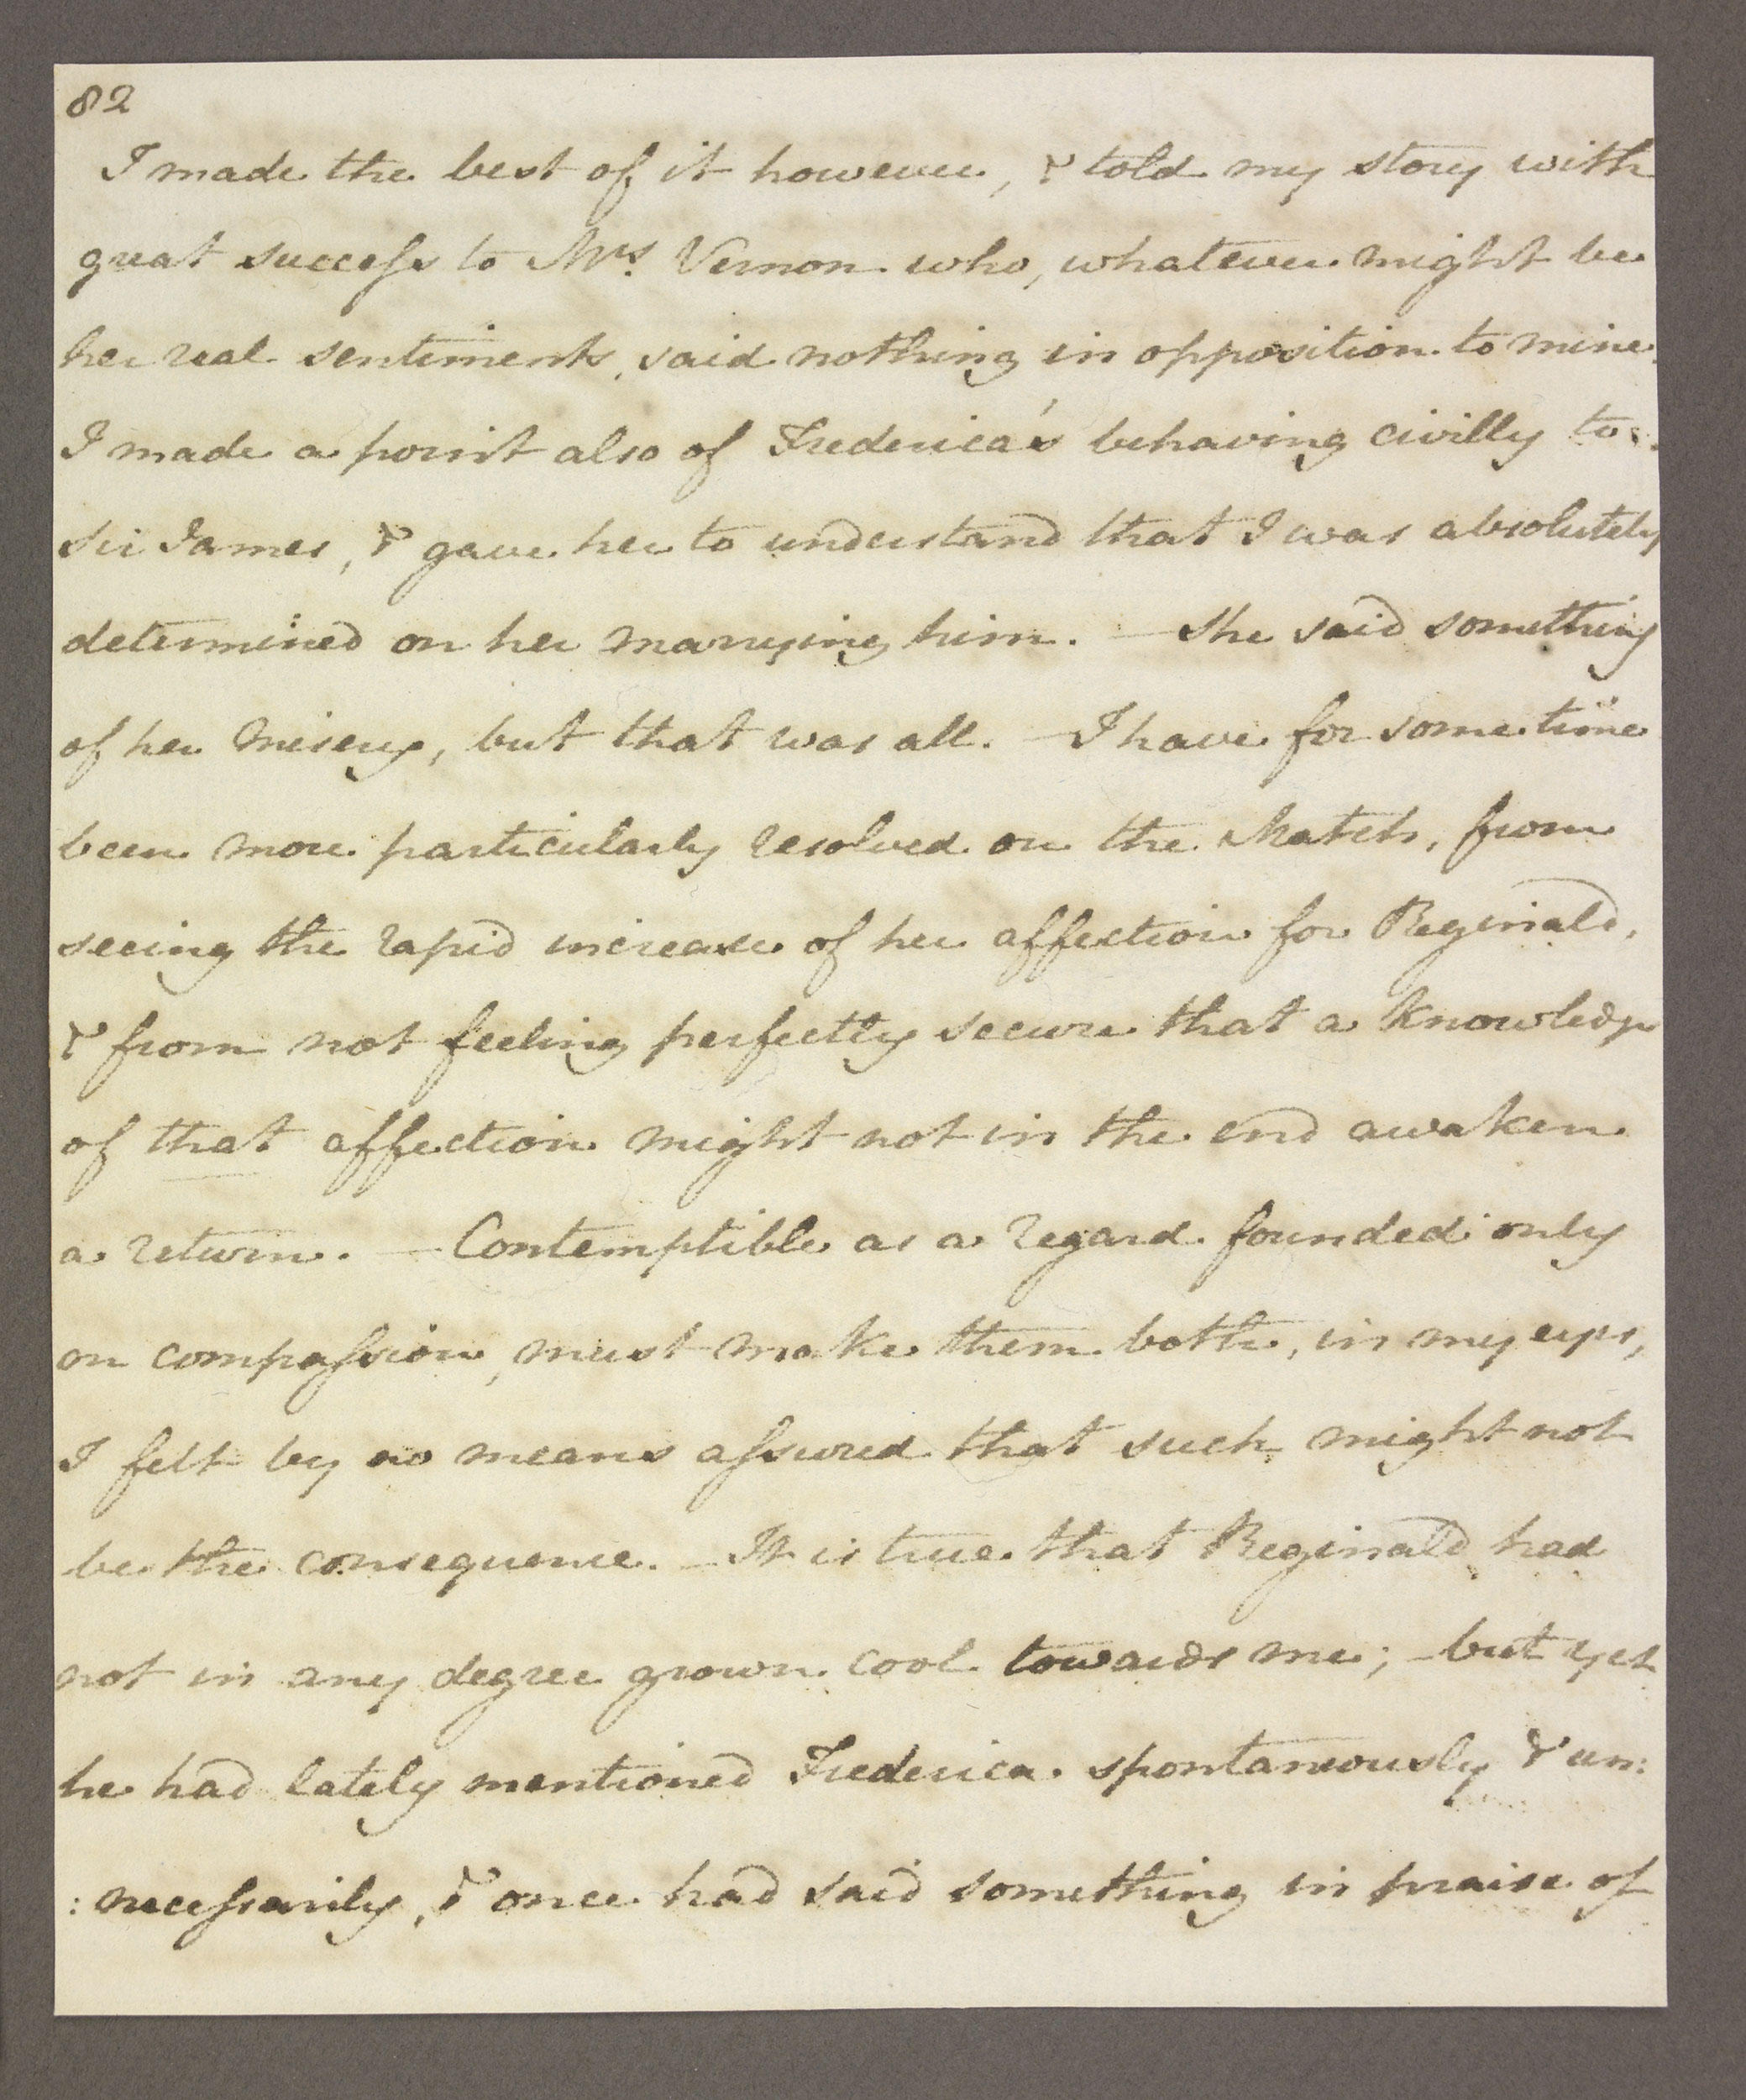 82
I made the best of it however, & told my story with
great success to Mrs. Vernon who, whatever might be
her real sentiments, said nothing in opposition to mine.
I made a point also of Frederica's behaving civilly to
Sir James, & gave her to understand that I was absolutely
determined on her marrying him. — She said something
of her misery, but that was all. — I have for some time
been more particularly resolved on the Match, from
seeing the rapid increase of her affection for Reginald,
& from not feeling perfectly secure that a knowledge
of that affection might not in the end awaken
a return. — Contemptible as a regard founded only
on compassion, must make them both, in my eyes,
I felt by no means assured that such might not
be the consequence. — It is true that Reginald had
not in any degree grown cool towards me; — but yet
he had lately mentioned Frederica spontaneously & un:
:necessarily, & once had said something in praise of